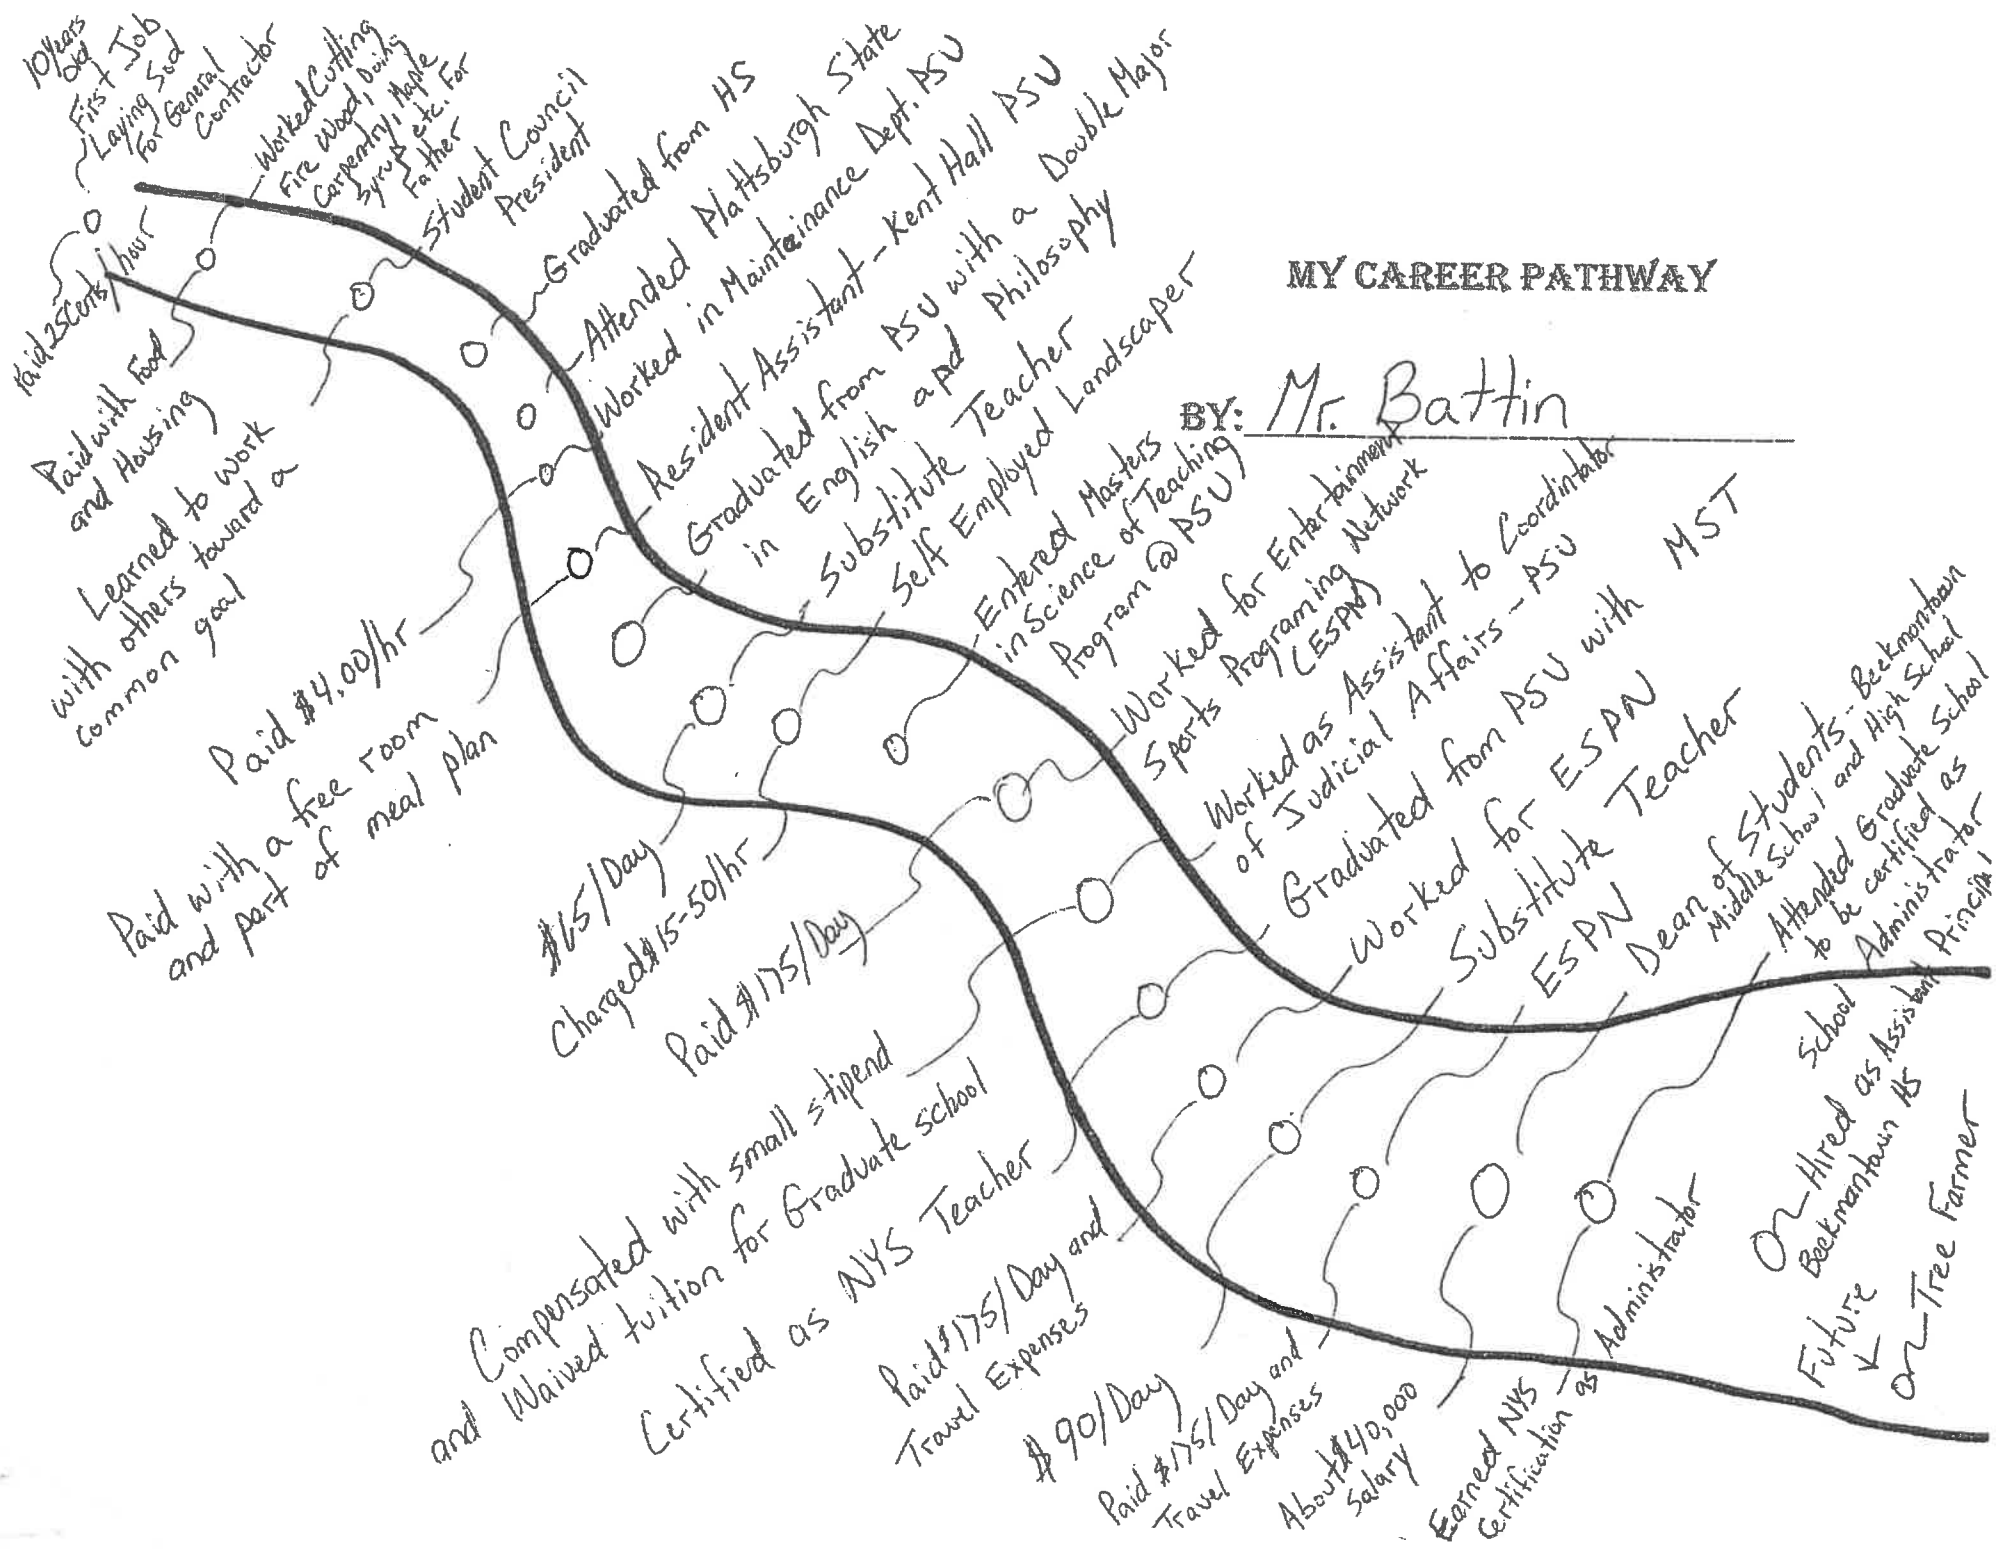 10 years
old
First Job
Laying Sod
For General
Contractor
Worked Cutting
Fire Wood, Doing
Carpentry, Maple
Syrup etc. For
Father
Student Council
President
Graduated from HS
Attended Plattsburgh State
Worked in Mainteinance Dept. PSU
Resident Assistant - Kent Hall PSU
Graduated from PSU with a Double Major
in English and Philosophy
Substitute Teacher
Self Employed Landscaper
Entered Masters
in Science of Teaching
Program @ PSU
Worked for Entertainment
Sports Programing Network
(ESPN)
Worked as Assistant to Coordintator
of Judicial Affairs - PSU
Graduated from PSU with MST
Worked for ESPN
Substitute Teacher
ESPN
Dean of Students - Beekmantown
Middle School and High School
Attended Graduate School
to be certified as
School Administrator
Hired as Assistant Principal
Beekmantown HS
Tree Farmer
Future
MY CAREER PATHWAY
BY: Mr. Battin
Paid 25 Cents/hour
Paid with Food
and Housing
Learned to work
with others toward a
common goal
Paid $4.00/hr
Paid with a free room
and part of meal plan
$65/Day
Charged $15-50/hr
Paid $175/Day
Compensated with small stipend
and Waived tuition for Graduate school
Certified as NYS Teacher
Paid $175/Day and
Travel Expenses
$90/Day
Paid $175/Day and
Travel Expenses
About $40,000
Salary
Earned NYS
Certification as Administrator